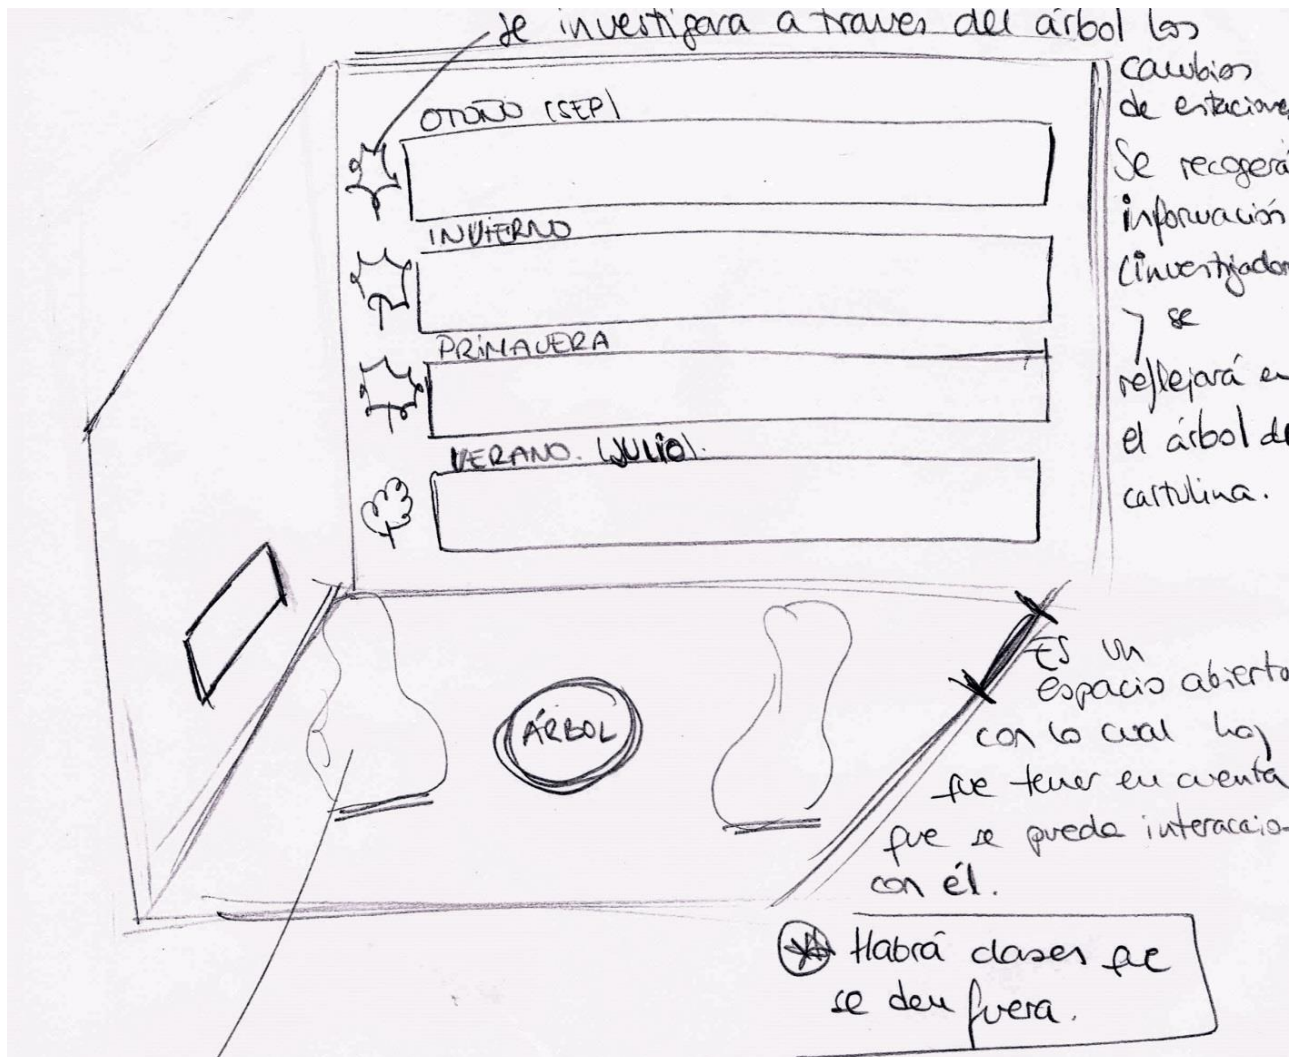 se investigara a traves del árbol los
cambios
de estaciones
Se recogerá
información
(investigador
se
reflejará en
el árbol de
cartulina.
OTOÑO (SEP)
INVIERNO
PRIMAVERA
VERANO. (JULIO).
ÁRBOL
ES un
espacio abierto
con lo cual hay
que tener en cuenta
que se pueda interaccio-
con él.
Habrá clases que
se den fuera.